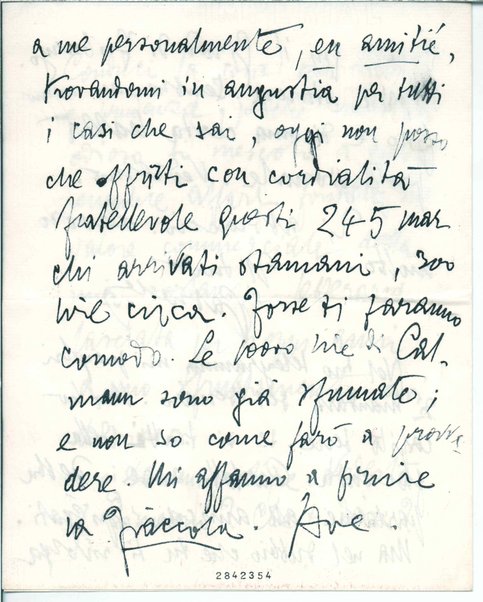 a me personalmente, en amitié,
trovandomi in angustia per tutti
i casi che sai, oggi non posso
che offrirti con cordialità
fratellevole questi 245 mar
chi arrivati stamani, 300
lire circa. Forse ti faranno
comodo. Le 1000 lire di Cal-
mann sono già sfumate;
e non so come farò a provve
dere. Mi affanno a finire
la Fiaccola. Ave
2842354